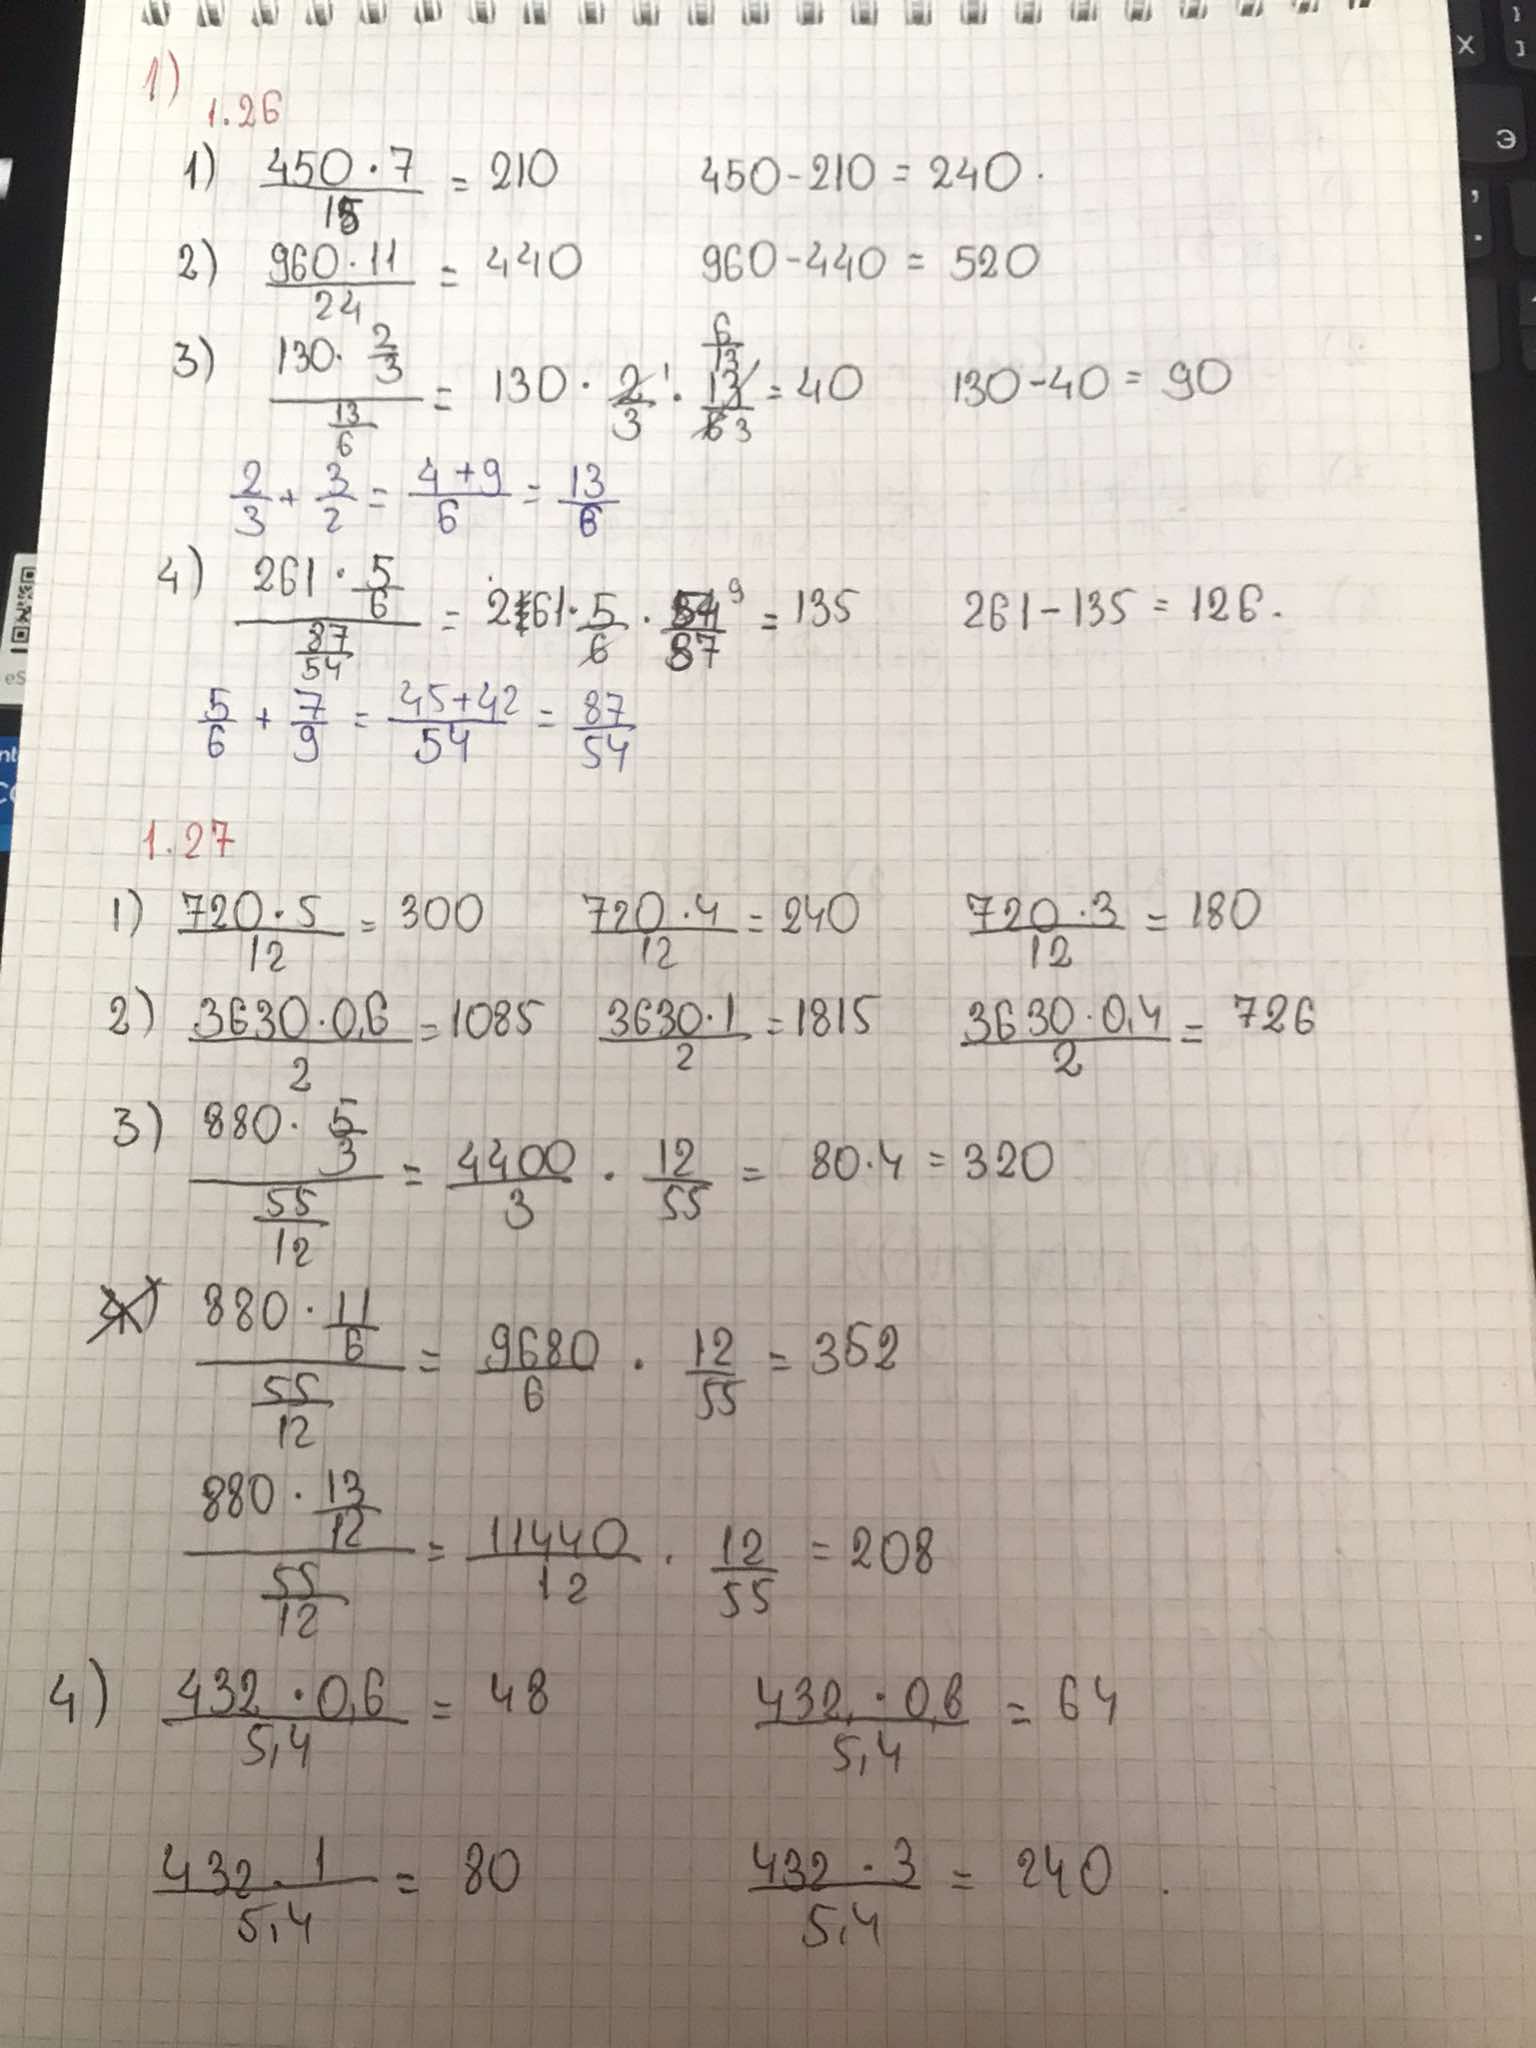 1)
1.26
1) (450·7)/15 = 210   450-210 = 240.
2) (960·11)/24 = 440   960-440 = 520
3) (130·2/3)/(13/6) = 130 · 2/3 · 13/6 = 40   130-40 = 90
1   6/13   3
2/3 + 3/2 = (4+9)/6 = 13/6
4) (261·5/6)/(87/54) = 261·5/6 · 54/87 = 135   261-135 = 126.
9
5/6 + 7/9 = (45+42)/54 = 87/54
1.27
1) (720·5)/12 = 300   (720·4)/12 = 240   (720·3)/12 = 180
2) (3630·0,6)/2 = 1085   (3630·1)/2 = 1815   (3630·0,4)/2 = 726
3) (880·5/3)/(55/12) = 4400/3 · 12/55 = 80·4 = 320
(880·11/6)/(55/12) = 9680/6 · 12/55 = 352
(880·13/12)/(55/12) = 11440/12 · 12/55 = 208
4) (432·0,6)/5,4 = 48   (432·0,8)/5,4 = 64
(432·1)/5,4 = 80   (432·3)/5,4 = 240.
Х
Э
eS